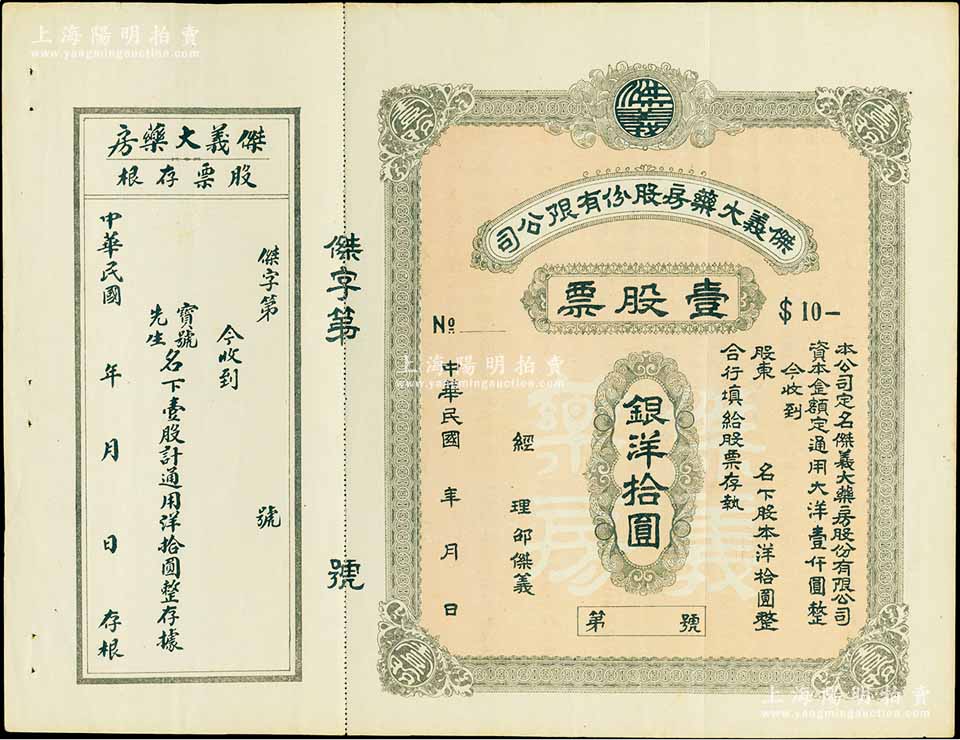 上海陽明拍賣
www.yangmingauction.com
傑義
傑義大藥房股份有限公司
壹股票
$ 10 —
No
本公司定名傑義大藥房股份有限公司
資本金額定通用大洋壹仟圓整
今收到
股東 名下股本洋拾圓整
合行填給股票存執
銀洋拾圓
經理 邵傑義
中華民國 年 月 日
第 號
傑義
藥房
傑字第 號
傑義大藥房
股票存根
傑字第 號
今收到
寶號
先生
名下壹股計通用洋拾圓整存據
中華民國 年 月 日 存根
上海陽明拍賣
www.yangmingauction.com
上海陽明拍賣
www.yangmingauction.com